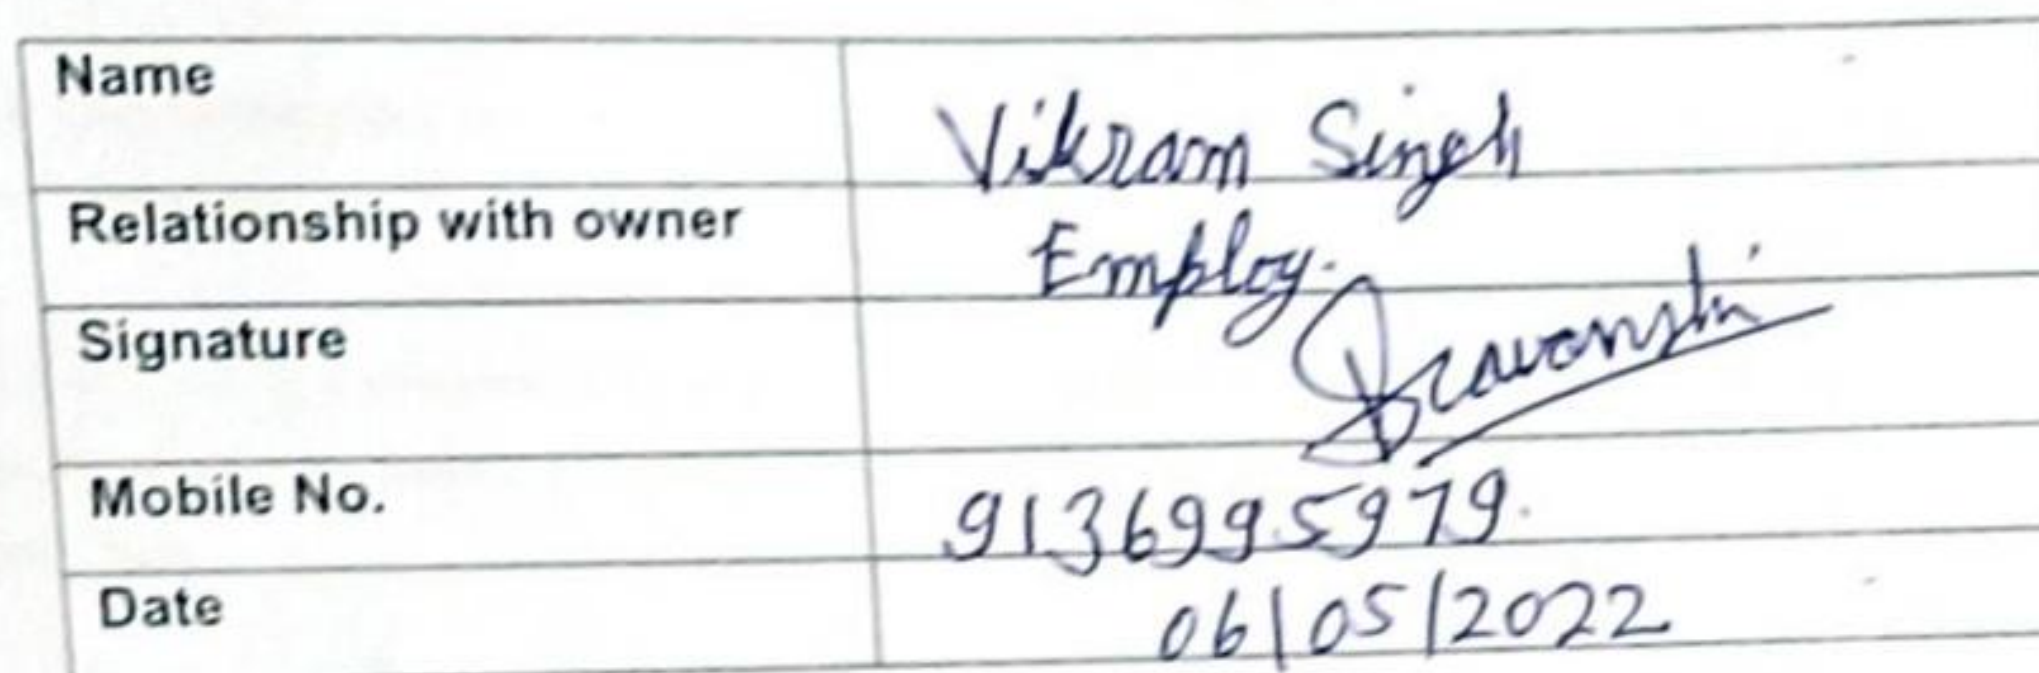 Name Vikram Singh
Relationship with owner Employ.
Signature
Mobile No. 9136995979.
Date 06/05/2022